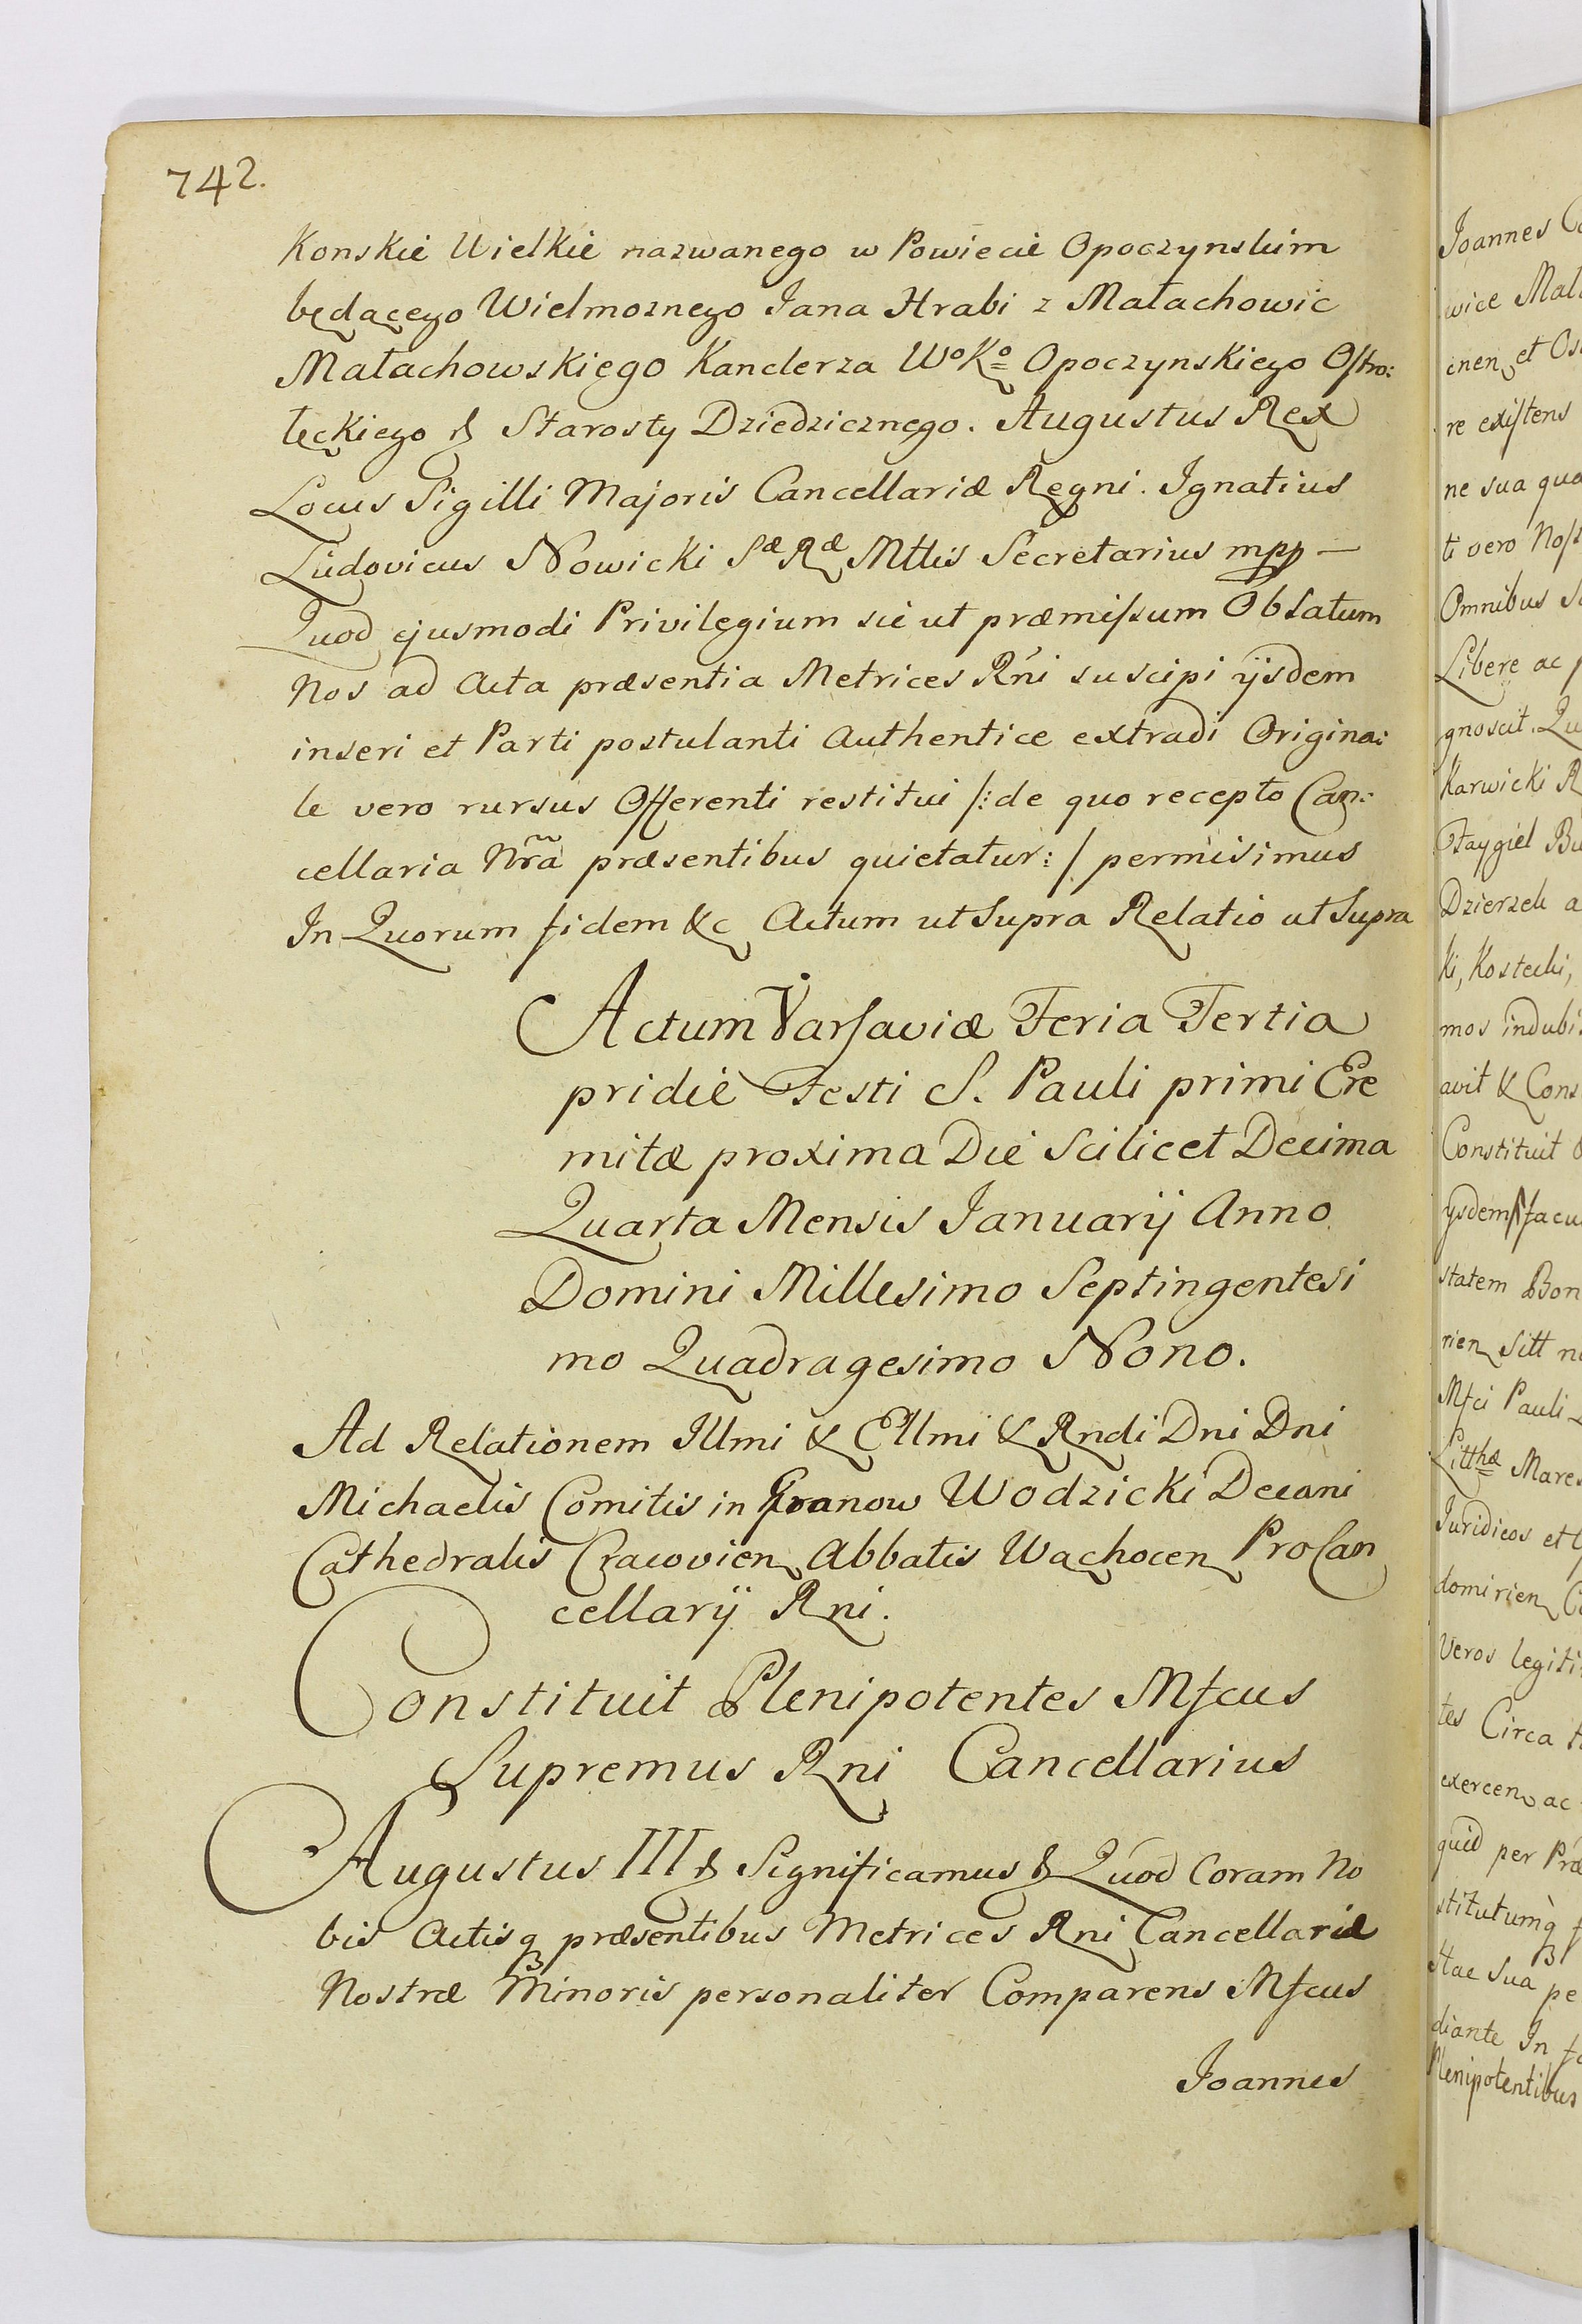 742.
Konskie Wielkie nazwanego w Powiecie Opoczynskim
będącego Wielmoznego Jana Hrabi z Małachowic
Małachowskiego Kanclerza WoKo Opoczynskiego Ostro:
łęckiego & Starosty Dziedzicznego. Augustus Rex
Locus Sigilli Majoris Cancellariæ Regni. Ignatius
Ludovicus Nowicki Sæ Ræ Mttis Secretarius mpp –
Quod ejusmodi Privilegium sic ut præmissum Oblatum
Nos ad Acta præsentia Metrices Rni suscipi ijsdem
inseri et Parti postulanti Authentice extradi Origina:
le vero rursus Offerenti restitui /: de quo recepto Can:
cellaria Nrã præsentibus quietatur: / permisimus
In Quorum fidem &c Actum ut Supra Relatio ut Supra
Actum Varsaviæ Feria Tertia
pridie Festi S. Pauli primi Ere
mitæ proxima Die Scilicet Decima
Quarta Mensis Januarij Anno
Domini Millesimo Septingentesi
mo Quadragesimo Nono.
Ad Relationem Illmi & Ellmi & Rndi Dni Dni
Michaelis Comitis in Granow Wodzicki Decani
Cathedralis Cracovien Abbatis Wachocen ProCan
cellarij Rni.
Constituit Plenipotentes Mfcus
Supremus Rni Cancellarius
Augustus III & Significamus & Quod Coram No
bis Actisq præsentibus Metrices Rni Cancellariæ
Nostræ Minoris personaliter Comparens Mfcus
Joannes
Joannes
wice
cnen et
re existens
ne sua
ti vero
Omnibus
Libere ac
gnoscit.
Karwicki
Faygiel
Dzierzek
ki, Kostecki,
mos
avit & Cons
Constituit
ysdem
statem Bon
rien Sitt
Mfci Pauli
Litthæ Mares
Juridicos et
domirien
Veros legiti
tes Circa
exercen ac
quid per
stitutumq
Hac Sua
diante In
Plenipotentibus